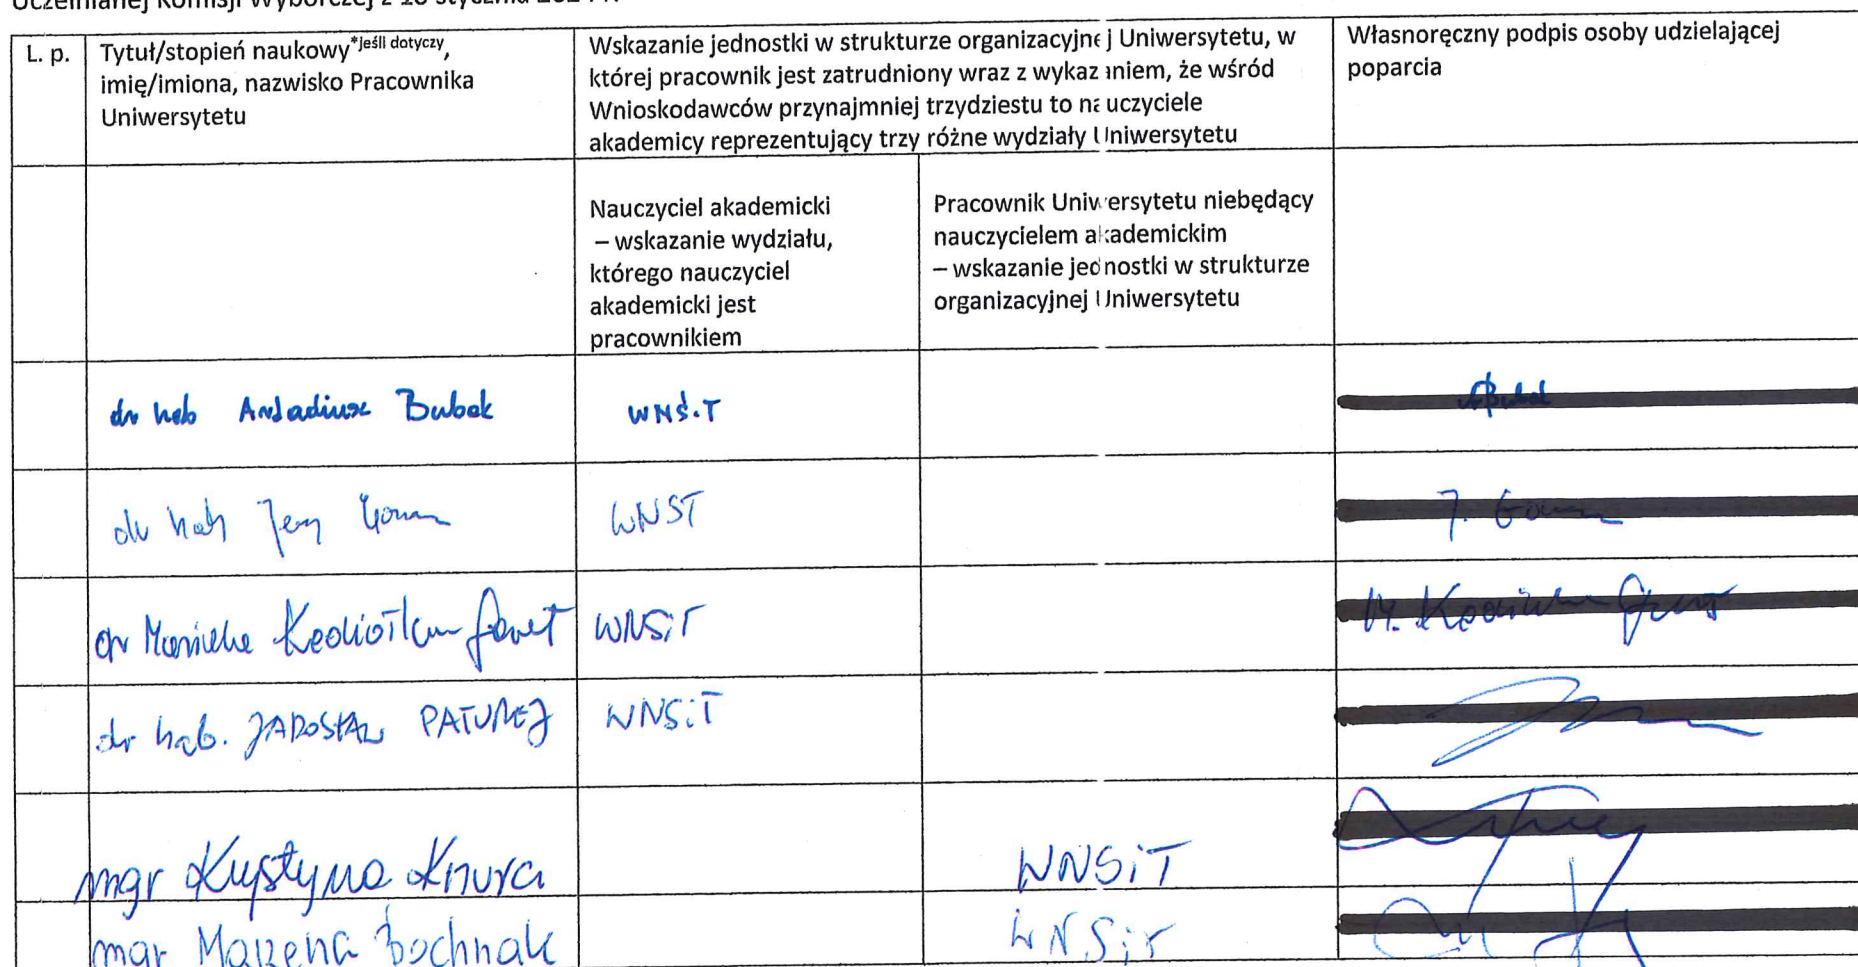 Uczelnianej Komisji Wyborczej z 18 stycznia 2024 r.
L. p.
Tytuł/stopień naukowy*jeśli dotyczy,
imię/imiona, nazwisko Pracownika
Uniwersytetu
Wskazanie jednostki w strukturze organizacyjnej Uniwersytetu, w
której pracownik jest zatrudniony wraz z wykazaniem, że wśród
Wnioskodawców przynajmniej trzydziestu to nauczyciele
akademicy reprezentujący trzy różne wydziały Uniwersytetu
Własnoręczny podpis osoby udzielającej
poparcia
Nauczyciel akademicki
– wskazanie wydziału,
którego nauczyciel
akademicki jest
pracownikiem
Pracownik Uniwersytetu niebędący
nauczycielem akademickim
– wskazanie jednostki w strukturze
organizacyjnej Uniwersytetu
dr hab Arkadiusz Bubak WNŚiT
dr hab Jerzy WNST
dr WNSiT
dr hab. JAROSŁAW PATUREJ WNSiT
mgr Krystyna Knura WNSiT
mgr Marzena Bochnak WNSiT